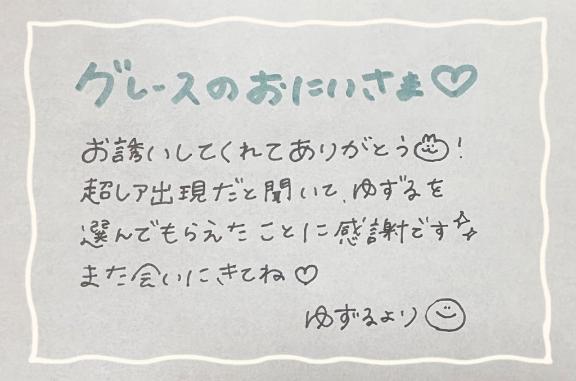 グレースのおにいさま♡
お誘いしてくれてありがとう!
超レア出現だと聞いて、ゆずるを
選んでもらえたことに感謝です
また会いにきてね♡
ゆずるより